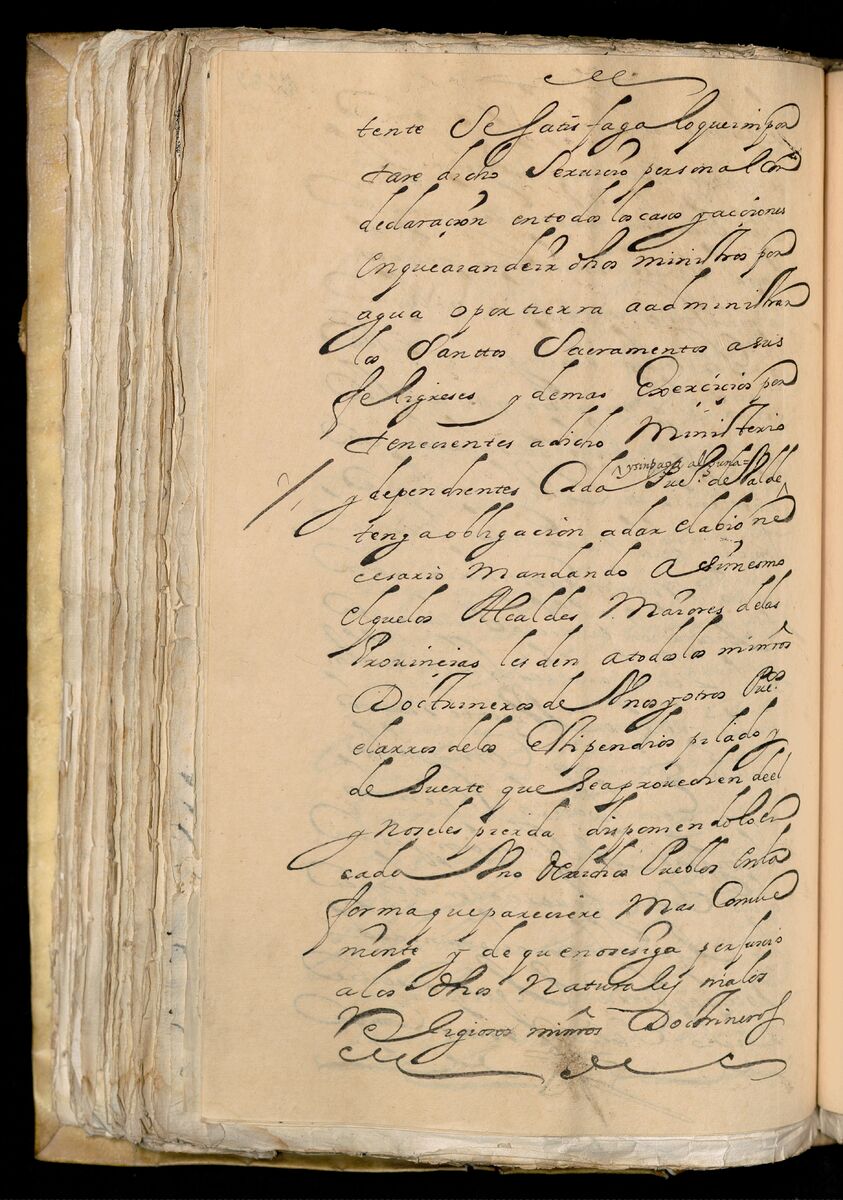 tente Se satisfaga loqueimpor
tare dicho Servicio personal Con
declaracion entodos los casos yacciones
enque aiandeir dhos ministros por
agua oportierra aadministrar
los Sanctos Sacramentos asus
feligreses y demas Exercicios per
tenecientes adicho Ministerio
ysinpaga alguna=
y dependientes Cada Pueo. de Valde
tenga obligacion adar elabio ne
cesario Mandando Asimesmo
elquelos Alcaldes Maiores delas
Provincias lesden atodos los minros
Doctrineros de Vnos yotros Pueos
elarros delos Stipendios pilado y
de Suerte que Seaprouechen deel
y Noseles pierda disponiendolo en
cada Vno dedichos Pueblos enla
forma que pareciere Mas Combe
niente y de que nosesiga perjuicio
alos dhos Naturales nialos
Religiosos minros Doctrineros